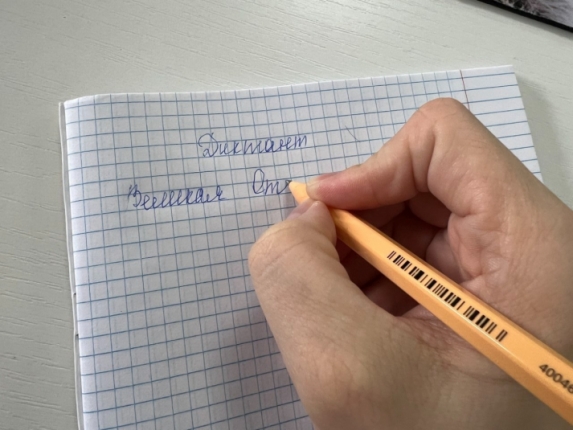 Диктант
Великая Оте
40046